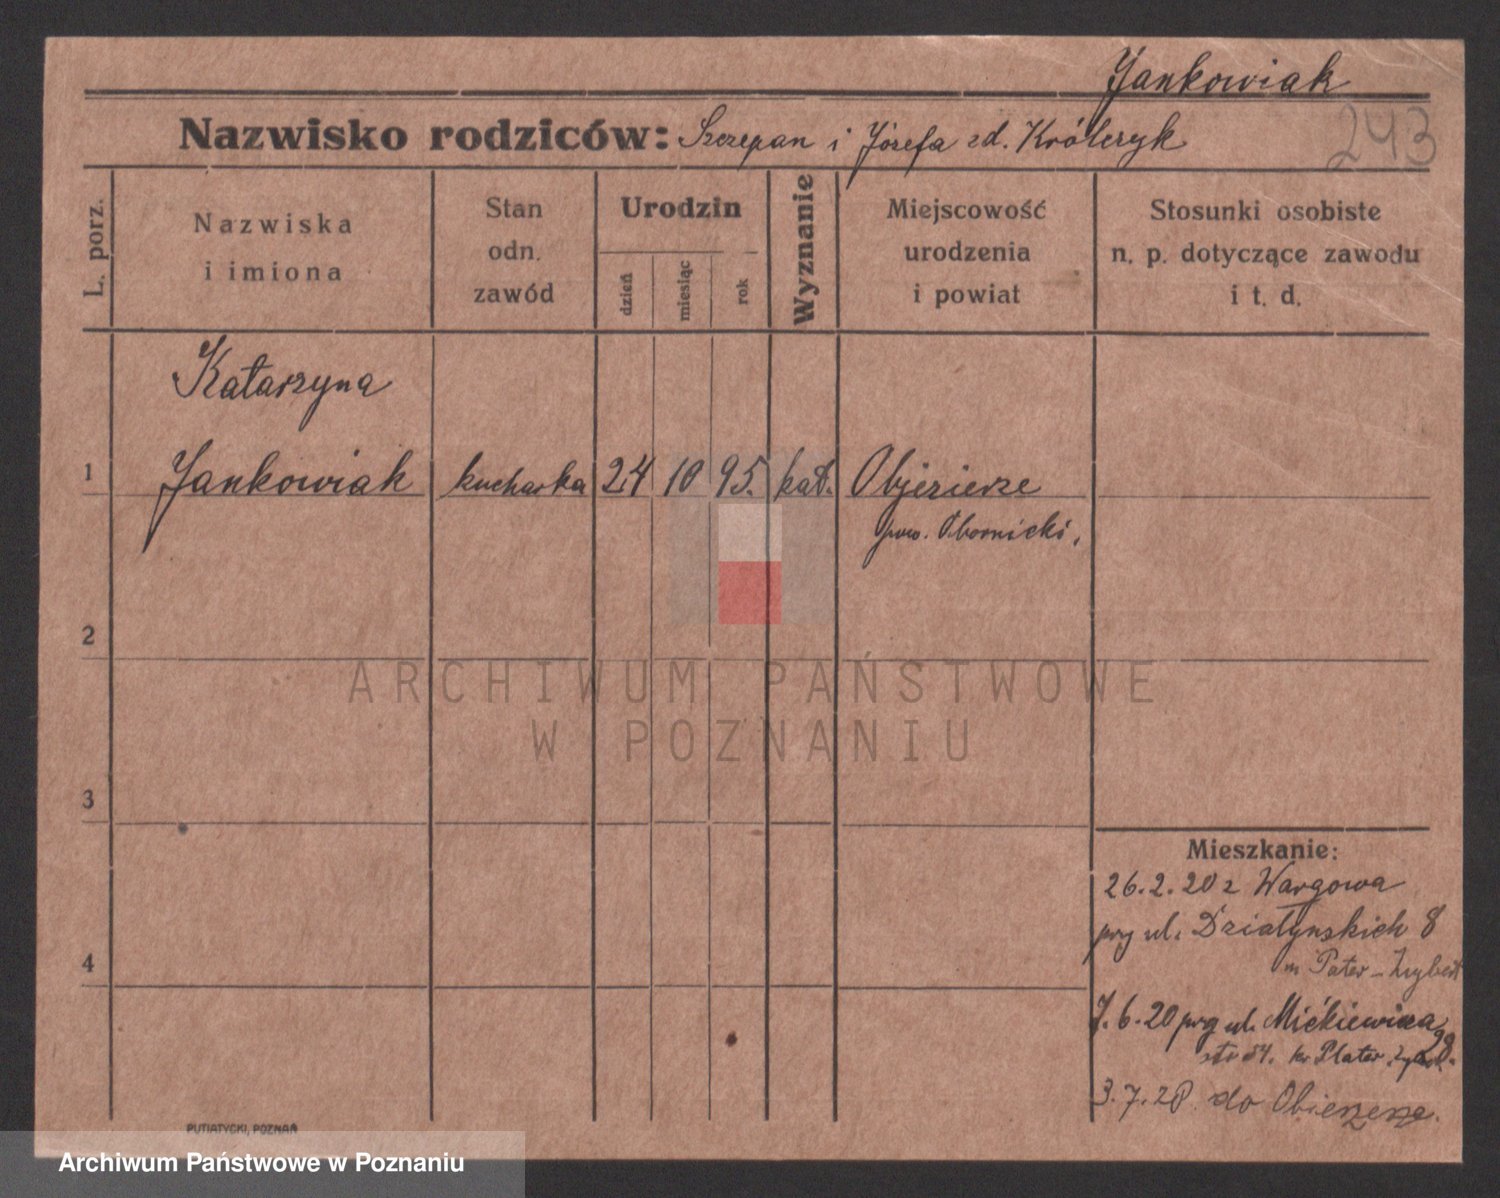 Jankowiak
Nazwisko rodziców: Szczepan i Józefa zd. Królczyk
243
L. porz.
Nazwiska
i imiona
Stan
odn.
zawód
Urodzin
dzień
miesiąc
rok
Wyznanie
Miejscowość
urodzenia
i powiat
Stosunki osobiste
n. p. dotyczące zawodu
i t. d.
Katarzyna
1 Jankowiak kucharka 24 10 95. kat. Objezierze
pow. Obornicki.
2
ARCHIWUM PAŃSTWOWE
W POZNANIU
3
4
Mieszkanie:
26.2.20 z Wargowa
przy ul. Działynskich 8
m Pater
7.6.20 przy ul. Mickiewicza 28
Plater
3.7.20. do Obiezeze.
PUTIATYCKI, POZNAŃ
Archiwum Państwowe w Poznaniu